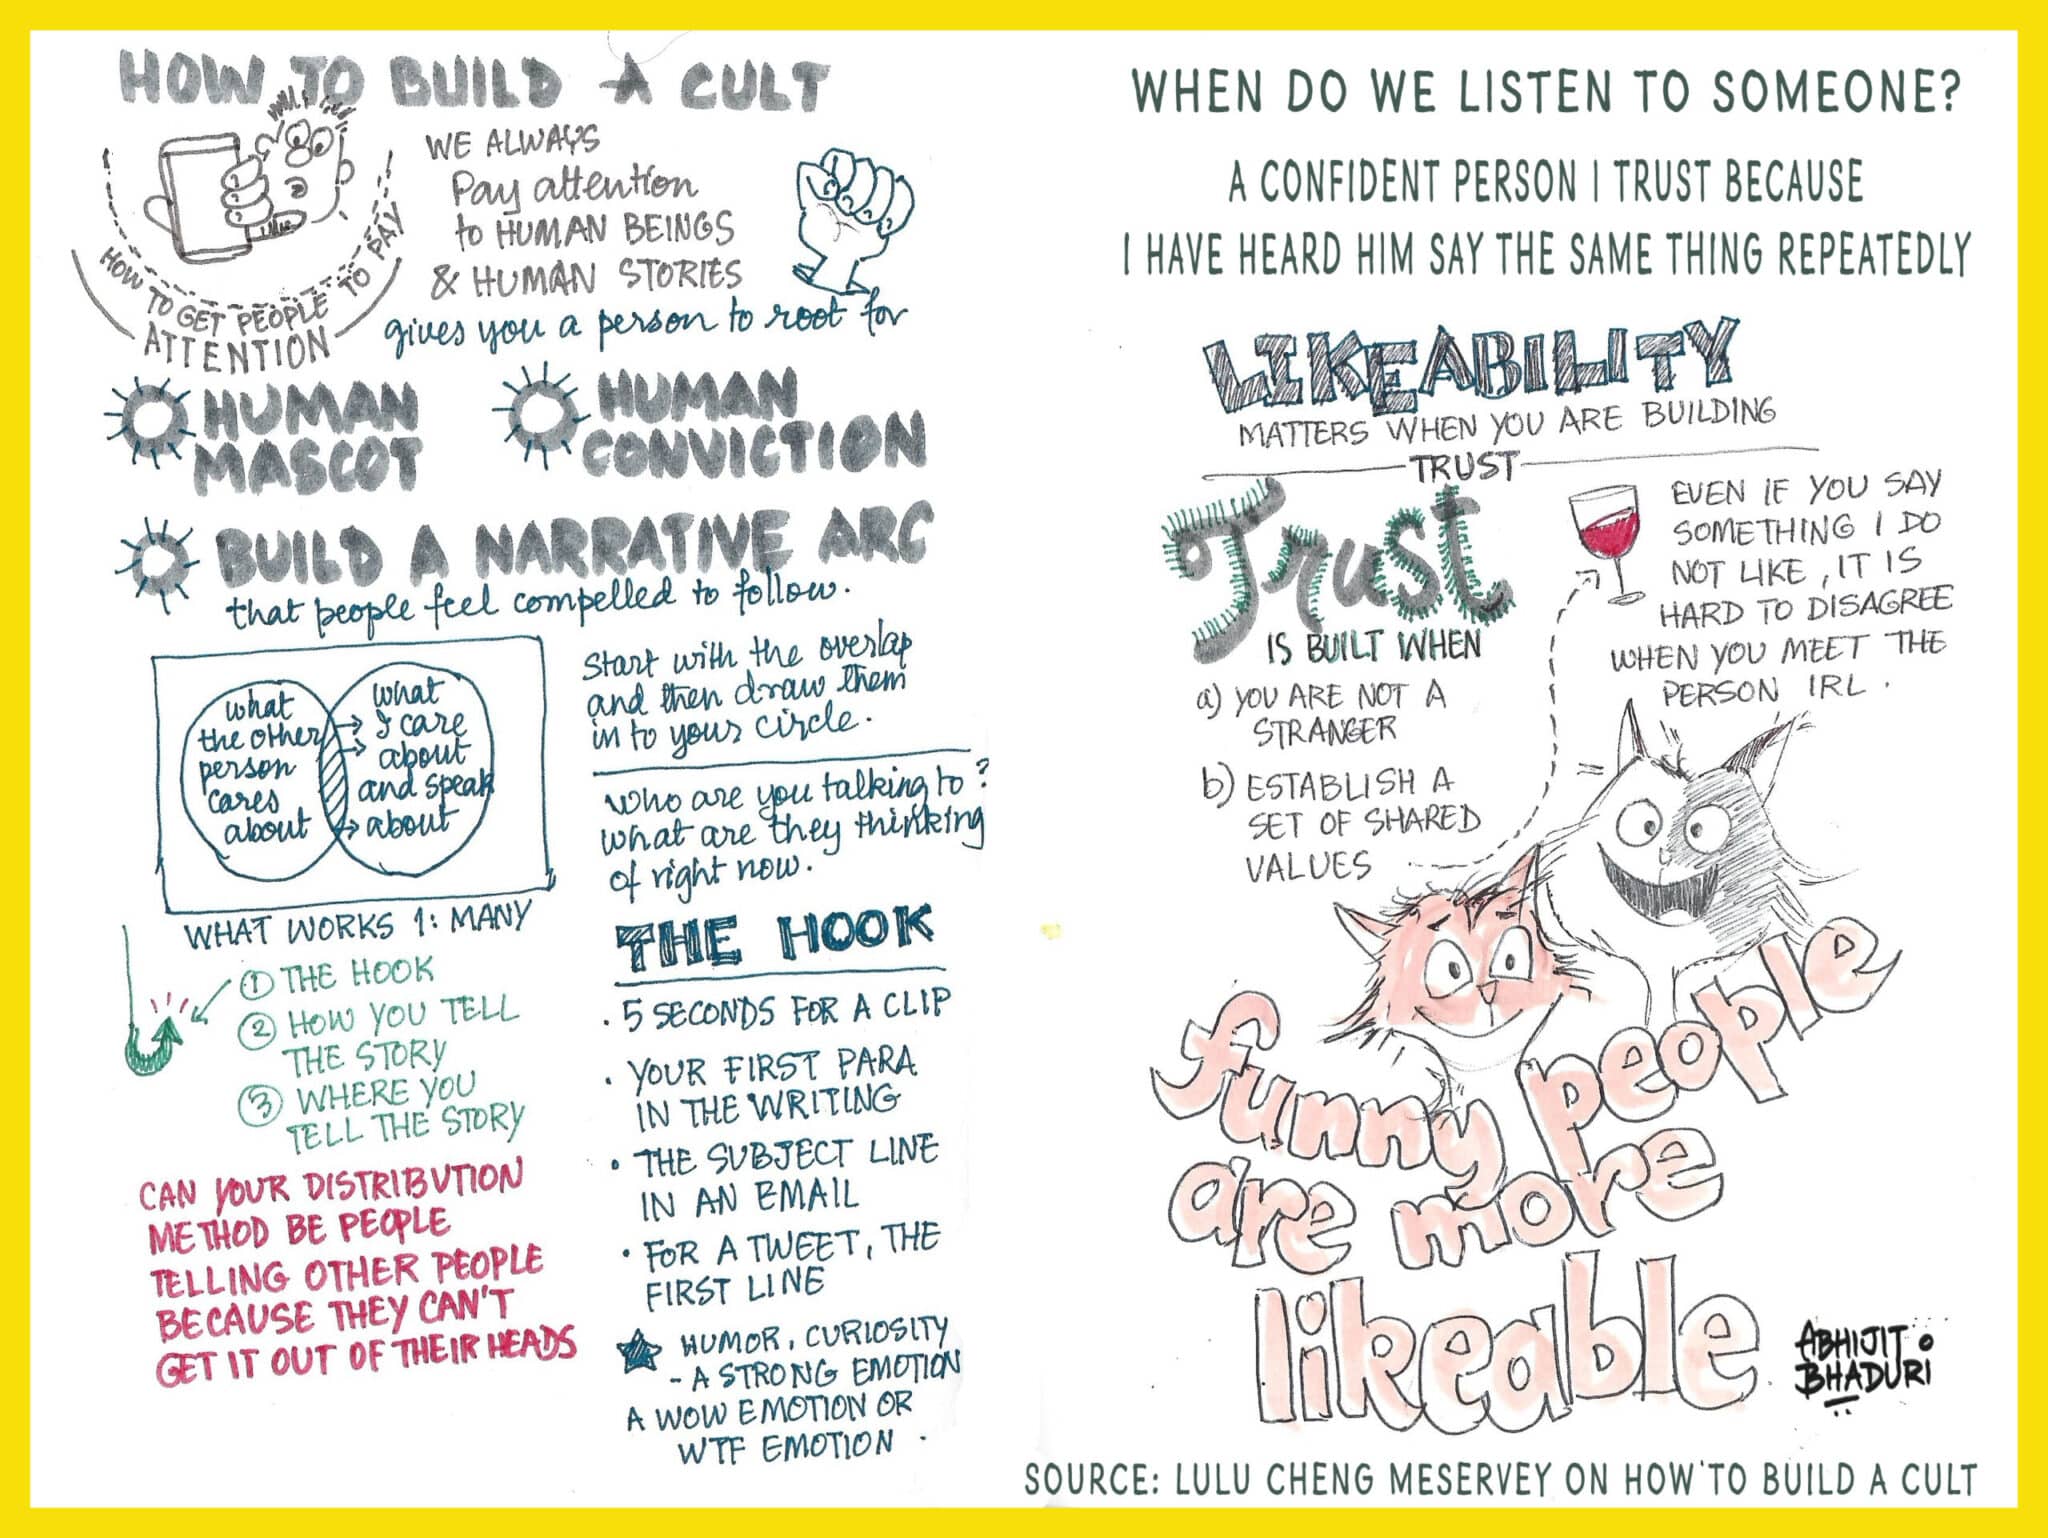 HOW TO BUILD A CULT
HOW TO GET PEOPLE TO PAY
ATTENTION
WE ALWAYS
Pay attention
to HUMAN BEINGS
& HUMAN STORIES
gives you a person to root for
HUMAN
MASCOT
HUMAN
CONVICTION
BUILD A NARRATIVE ARC
that people feel compelled to follow.
what
the other
person
cares
about
what
I care
about
and speak
about
Start with the overlap
and then draw them
in to your circle.
Who are you talking to?
what are they thinking
of right now.
WHAT WORKS 1: MANY
1 THE HOOK
2 HOW YOU TELL
THE STORY
3 WHERE YOU
TELL THE STORY
CAN YOUR DISTRIBUTION
METHOD BE PEOPLE
TELLING OTHER PEOPLE
BECAUSE THEY CAN'T
GET IT OUT OF THEIR HEADS
THE HOOK
. 5 SECONDS FOR A CLIP
. YOUR FIRST PARA
IN THE WRITING
• THE SUBJECT LINE
IN AN EMAIL
• FOR A TWEET, THE
FIRST LINE
HUMOR, CURIOSITY
- A STRONG EMOTION
A WOW EMOTION OR
WTF EMOTION.
WHEN DO WE LISTEN TO SOMEONE?
A CONFIDENT PERSON I TRUST BECAUSE
I HAVE HEARD HIM SAY THE SAME THING REPEATEDLY
LIKEABILITY
MATTERS WHEN YOU ARE BUILDING
TRUST
Trust
IS BUILT WHEN
a) YOU ARE NOT A
STRANGER
b) ESTABLISH A
SET OF SHARED
VALUES
EVEN IF YOU SAY
SOMETHING I DO
NOT LIKE, IT IS
HARD TO DISAGREE
WHEN YOU MEET THE
PERSON IRL.
funny people
are more
likeable
ABHIJIT
BHADURI
SOURCE: LULU CHENG MESERVEY ON HOW TO BUILD A CULT